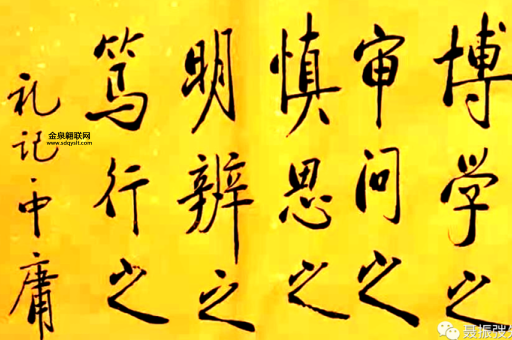 博学之
审问之
慎思之
明辨之
笃行之
礼记·中庸
金泉翱联网
www.sdqyslt.com